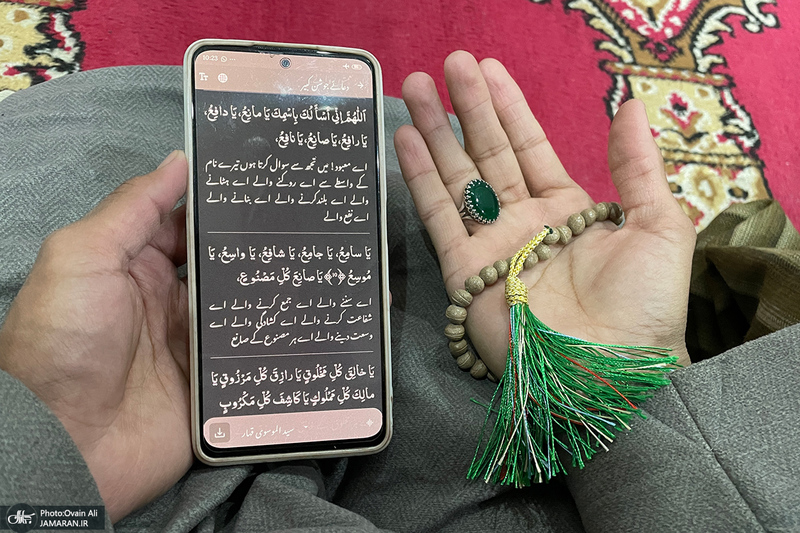 10:23
دعائے جوشن کبیر
اَللّٰهُمَّ اِنِّیْ اَسْأَلُكَ بِاسْمِكَ یَا مانِعُ، یَا دافِعُ،
یَا رافِعُ، یَا صانِعُ، یَا نافِعُ،
اے معبود! میں تجھ سے سوال کرتا ہوں تیرے نام
کے واسطے سے اے روکنے والے اے ہٹانے
والے اے بلند کرنے والے اے بنانے والے
اے نفع والے
یَا سامِعُ، یَا جامِعُ، یَا شافِعُ، یَا واسِعُ، یَا
مُوسِعُ یَا صانِعَ كُلِّ مَصْنُوعٍ،
اے سننے والے اے جمع کرنے والے اے
شفاعت کرنے والے اے کشادگی والے اے
وسعت دینے والے اے ہر مصنوع کے صانع
یَا خالِقَ كُلِّ مَخْلُوقٍ یَا رازِقَ كُلِّ مَرْزُوقٍ یَا
مالِكَ كُلِّ مَمْلُوكٍ یَا كاشِفَ كُلِّ مَكْرُوبٍ
سید الموسوی قہار
Photo:Ovain Ali
JAMARAN.IR